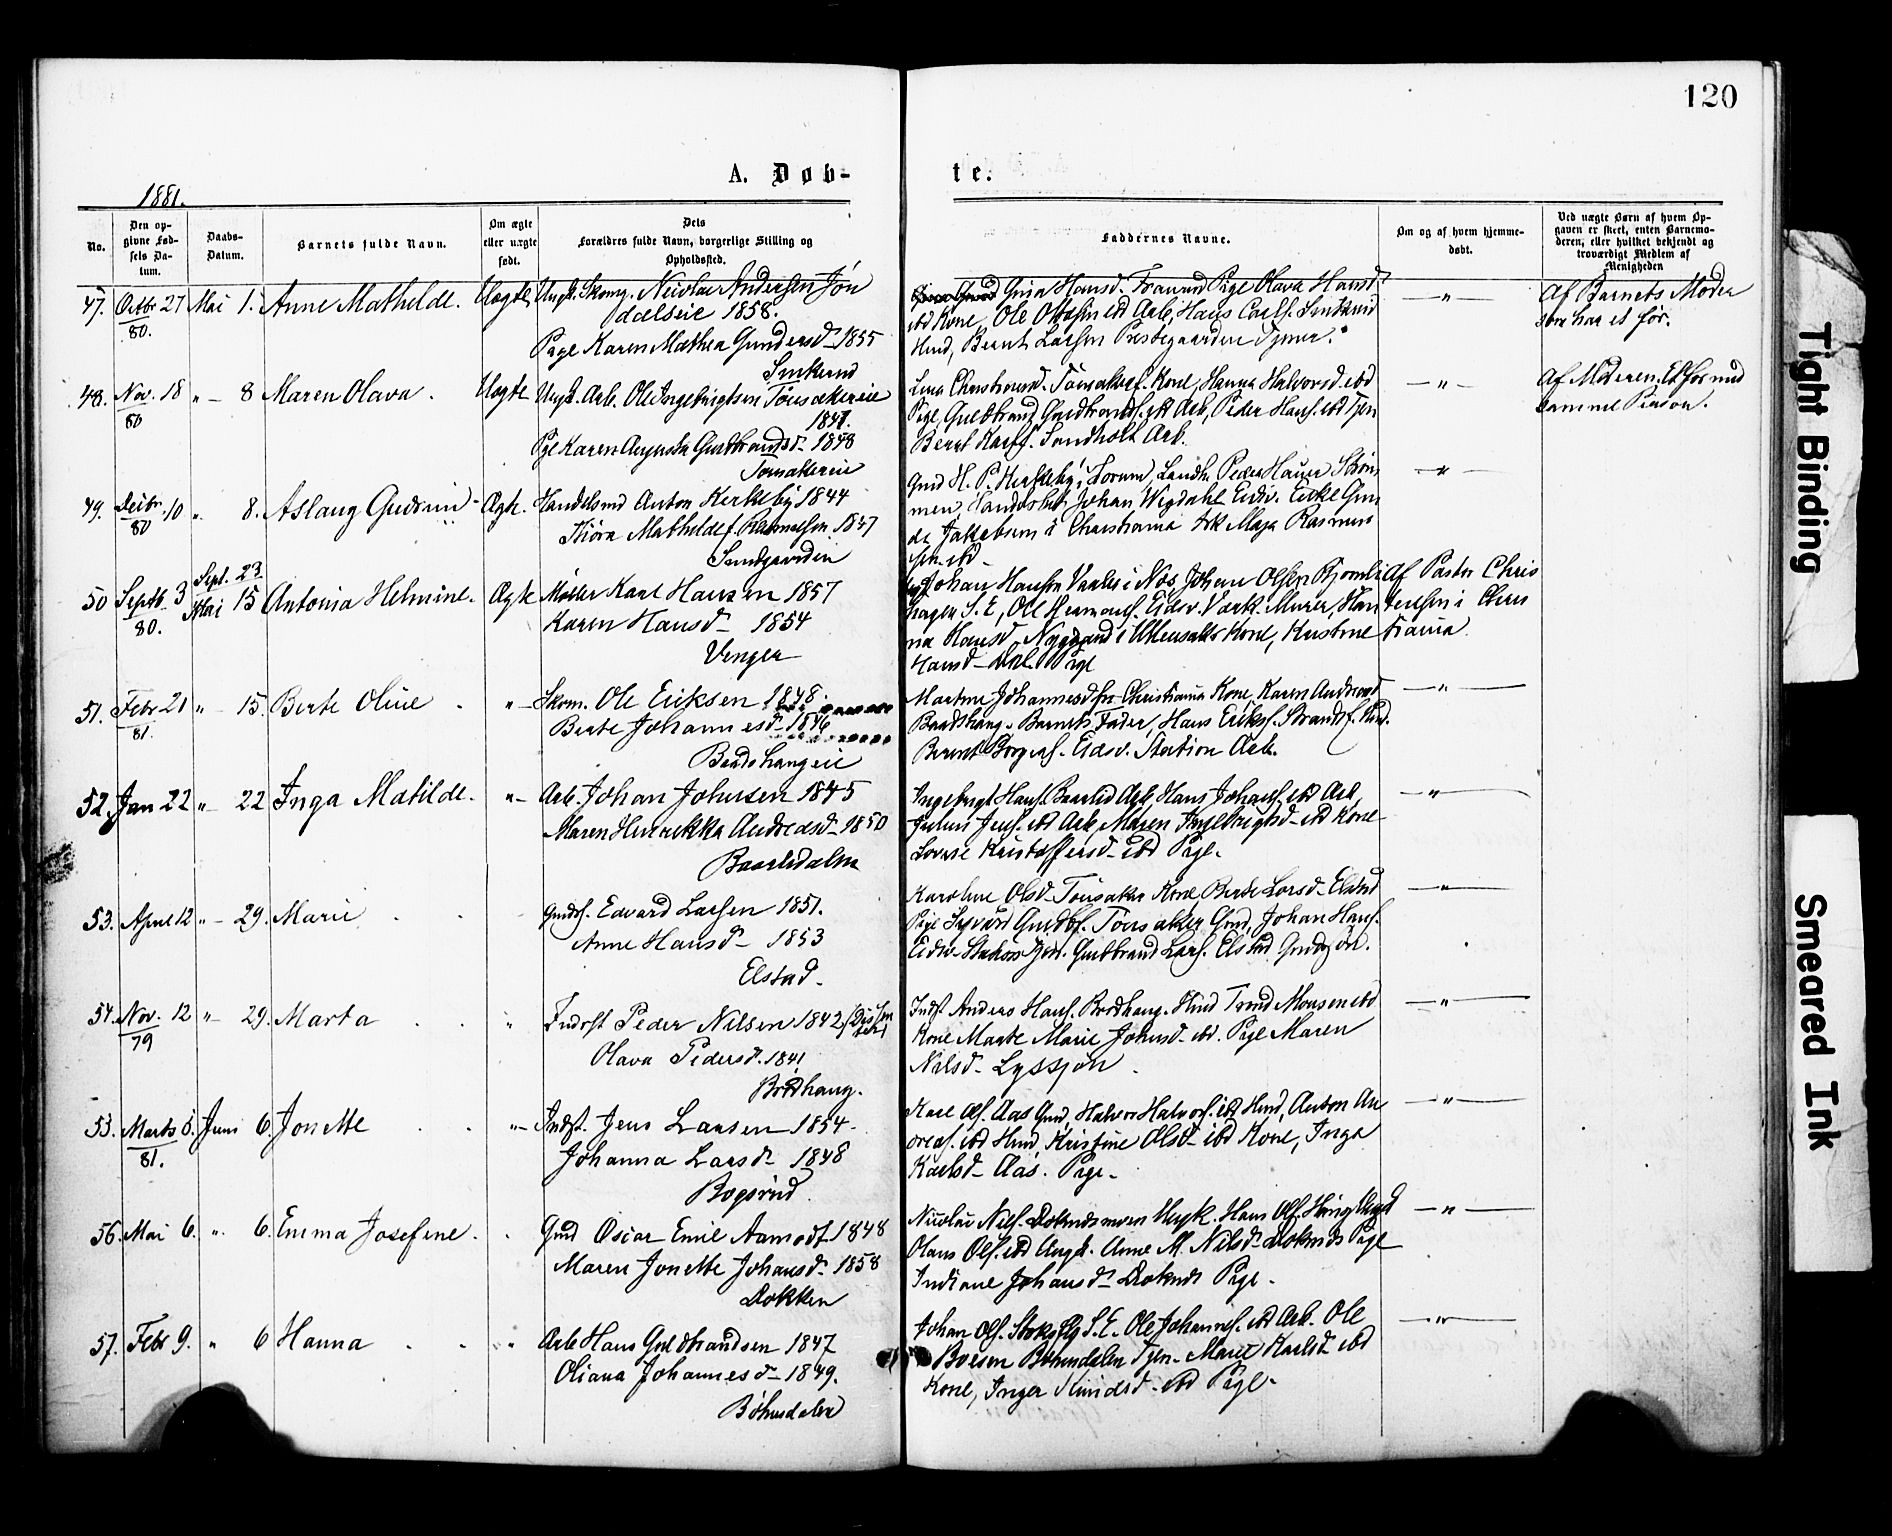 120
A. Døb-
te.
1881.
No.
Den op-
givne Fød-
sels Da-
tum.
Daabs-
Datum.
Barnets fulde Navn.
Om ægte
eller uægte
født.
Dels
Forældres fulde Navn, borgerlige Stilling og
Opholdssted.
Faddernes Navne.
Om og af hvem hjemme-
døbt.
Ved uægte Børn af hvem Op-
gaven er skeet, enten Barnemo-
deren, eller hvilket bekjendt og
troværdigt Medlem af
Menigheden
47. Octbr 27 Mai 1. Anne Mathilde. Uægte Ungk. Skomg. Nicolai Andersen Jøn
80. dalseie 1858.
Pige Karen Mathea Gundersd 1855
Gina Hansd. Pige Olava Hansd
ibd Kone, Ole Ottosen ibd Arb, Hans Carls.
Hmd, Bernt Larsen Prestegaarden Tjener.
— " — Af Barnets Moder
som har et før.
48. Nov. 18 " — 8 Maren Olava. Uægte Ungk. Arb. Ole Ingebrigtsen Tønsakereie
80 1841.
Pge Karen Augusta Guldbrandsd. 1848
Tønsakereie
Lina Christiansd. Tønsakere. Kone, Hanna Halvorsd. ibd
Pige, Guldbrand Guldbrands. ibd Arb, Peder Hans. ibd Tjen
Bernt Karls. Sandholt Arb.
— " — Af Moderen. Et før med
samme Person.
49. Deibr. 10 " 8. Aslaug Gudrun Ægte. Handelsmd Anton Kerkeby 1844
80 Thora Mathilde f. Rasmussen 1847
Sundgaarden
Gmd H. P. Kerkeby, Sørum, Landh. Peder Hauer Strøm
men, Handelsbet. Johan Wigdahl Eidsv. Enke Gun
da Jakobsen i Christiania Frk Maja Rasmus
sen ibd
— " —
50 Septb. 3 Sept. 23
80. Mai 15 Antonia Helmine. Ægte Møller Karl Hansen 1857
Karen Hansd 1854
Venger
Johan Hansen i Næs, Johan Olsen Bjørnli
hagen S. E, Ole Hermans. Eidsv. Værk. Murer, Han
na Hansd Nygaard i Ullensaker Kone, Kristine
Hansd — Dal. Pige
Af Pastor Chris
tensen i Chris
tiania.
51. Febr 21 " — 15. Berte Oline. " — Skom. Ole Eriksen 1848.
81. Berte Johannesd 1846
Baadshangeie
Martine Johannesd fra Christiania Kone, Karen Andersd
Baadshang. Barnets Fader, Hans Eriks. Strands.
Berent Borgers. Eidsv. Station Arb.
— " —
52. Jan 22 " — 22 Inga Matilde. " — Arb. Johan Johnsen 1845
Maren Henrikka Andreasd — 1850
Baarlidalen
Ingebrigt Hans. Baarlid Arb, Hans Johans. ibd Arb,
Julius Jens. ibd Arb, Maren Ingebrigtsd — ibd Kone
Lovise Kristoffersd — ibd Pige.
— " —
53. April 12 " — 29. Marie Gmds. Edvard Larsen 1851.
Anne Hansd — 1853
Elstad.
Karoline Olsd — Tønsaker Kone, Berte Larsd — Elstad
Pige Syver Guldbs. Tønsaker Gmd, Johan Hans.
Eidsv. Stadion Tjen. Guldbrand Lars. Elstad Gmdssøn.
— " —
54. Nov. 12 " — 29. Marta " Indst Peder Nilsen 1842 (Dissen
79 ter)
Olava Pedersd. 1841
Brodhang.
Indst. Anders Hans. Brodhang. Hmd Trond Monsen ibd
Kone Marte Marie Johnsd — ibd. Pige Maren
Nilsd — Lyssjøn
— " —
55. Marts 5. Juni 6. Jonette " — Indst. Jens Larsen 1854.
81. Johanna Larsd — 1848
Bogsrud.
Karl Ols. Aas Gmd, Halvor Halvors. ibd Hmd, Anton An
dreas. ibd Hmd, Kristine Olsd — ibd Kone, Inga
Karlsd — Aas. Pige.
— " —
56. Mai 6. " 6. Emma Josefine. Gmd Oscar Emil Aamodt 1848
Maren Jonette Johansd — 1858
Dokken
Nicolai Nils. Doknesmoen Ungk. Hans Ols. Ungk
Olaus Ols. ibd Ungk. Anne M. Nilsd — Doknes Pige
Indiane Johansd — Doknes Pige.
— " —
57. Febr 9. " 6 Hanna " Arb Hans Guldbrandsen 1847
Oliana Johannesd — 1849.
Bøhnsdalen
Johan Ols. S. E. Ole Johannes. ibd Arb. Ole
Boesen Bøhnsdalen Tjen. Maret Karlsd ibd
Kone, Inger — ibd Pige.
— " —
Tight Binding
Smeared Ink